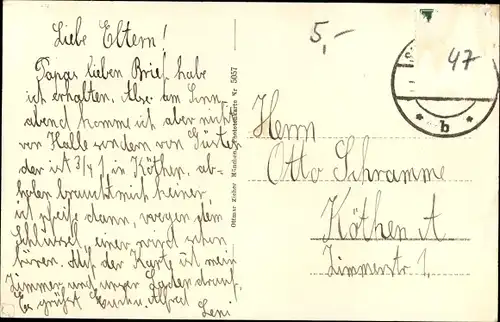 Liebe Eltern!
Papas lieben Brief habe
ich erhalten. Also am Sonn-
abend komme ich aber nicht
von Halle sondern von Güsten
der ist 3/4 1 in Köthen, ab-
holen braucht mich keiner,
ich pfeife dann, wegen dem
Schlüssel, einer wird schon
hören. Auf der Karte ist mein
Zimmer und unser Laden drauf.
Es grüßt Euch u. Alfred
Leni
Ottmar Zieher München, Photo Nr 5057
5,-
47
* b *
Herrn
Otto Schramme
Köthen A.
Zimmerstr. 1.